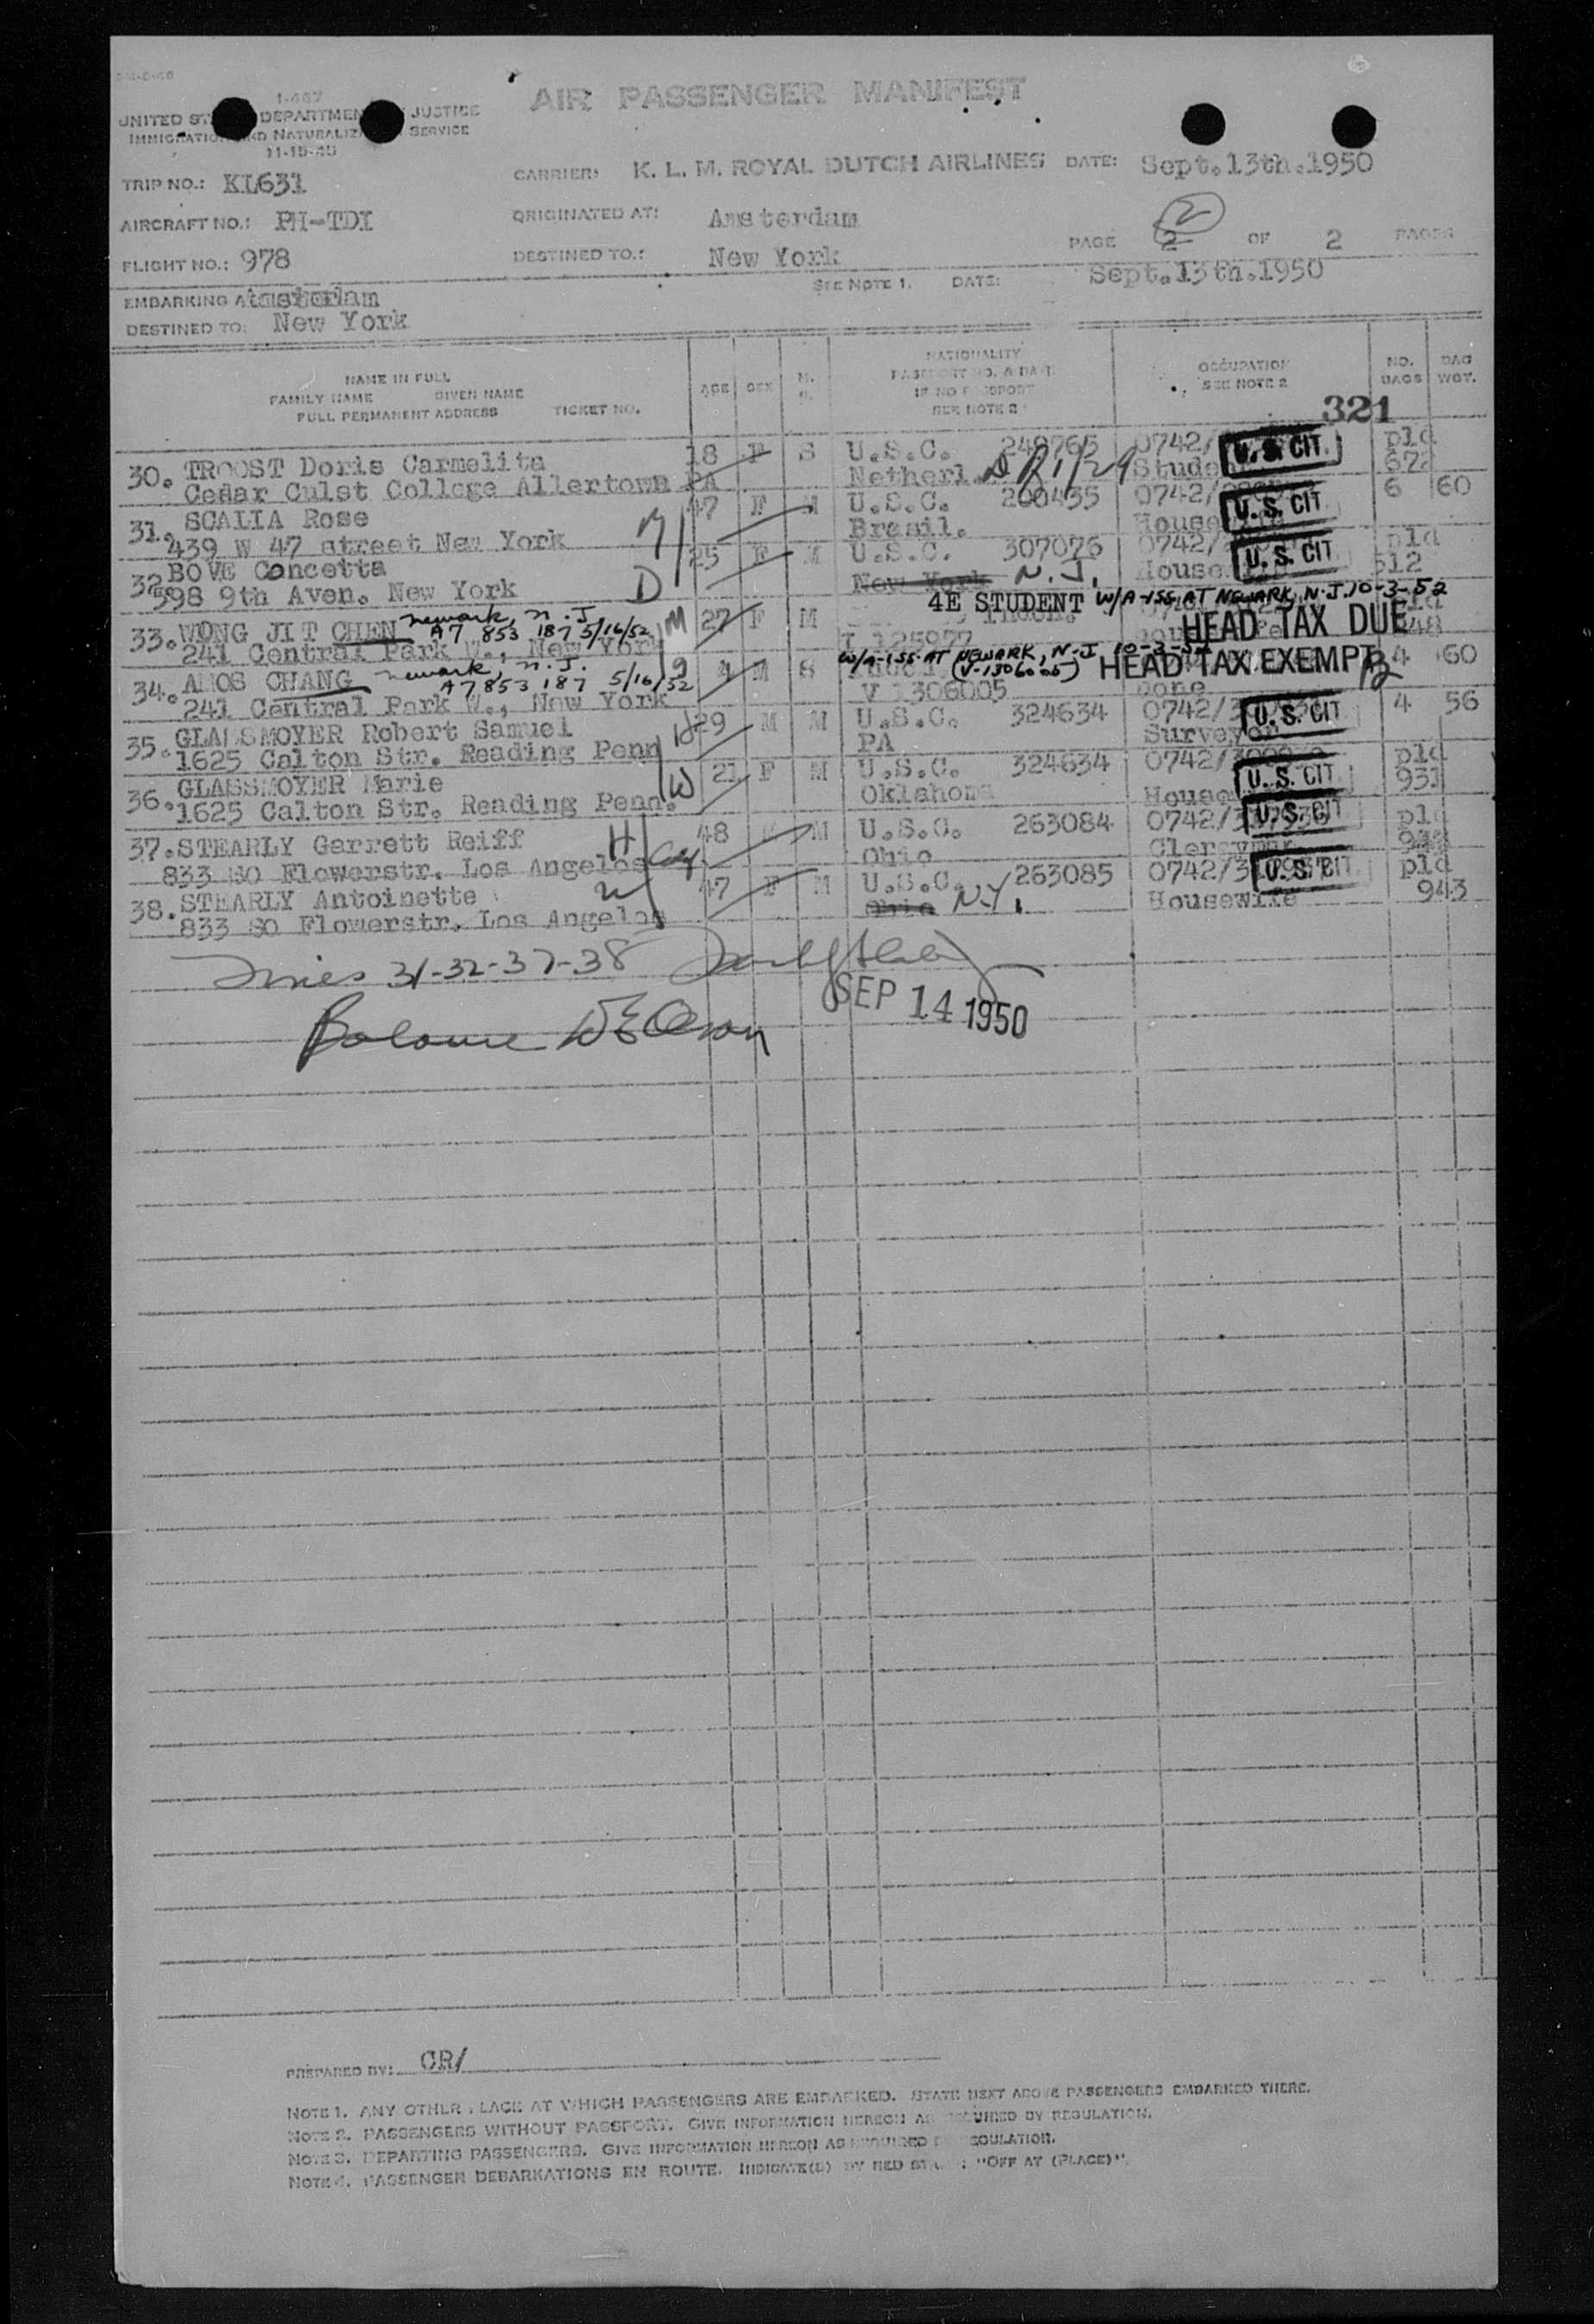 AIR PASSENGER MANIFEST
I-467
UNITED ST DEPARTMEN JUSTICE
IMMIGRATIO ND NATURALIZ SERVICE
11-15-45
CARRIER: K. L. M. ROYAL DUTCH AIRLINES DATE: Sept.13th.1950
TRIP NO.: KL631
AIRCRAFT NO.: PH-TDI ORIGINATED AT: Amsterdam
PAGE 2 2 OF 2 PAGES
FLIGHT NO.: 978 DESTINED TO.: New York
SEE NOTE 1. DATE: Sept.13th.1950
EMBARKING AT Amsterdam
DESTINED TO: New York
NAME IN FULL
FAMILY NAME GIVEN NAME
FULL PERMANENT ADDRESS TICKET NO.
AGE SEX M. NATIONALITY
PASSPORT NO. & DATE
IF NO PASSPORT
SEE NOTE 2
OCCUPATION
SEE NOTE 2
NO. BAGS BAG WGT.
321
30. TROOST Doris Carmelita 18 F S U.S.C. 249765 0742/ U.S. CIT. pld
Cedar Culst College Allertown PA Netherl. Stude 672
31. SCALIA Rose 47 F M U.S.C. 200435 0742/ U.S. CIT 6 60
439 W 47 street New York Brasil. House
32. BOVE Concetta 25 F M U.S.C. 307076 0742/ U.S. CIT pld
598 9th Aven. New York D New York N.J. House 512
4E STUDENT W/A-155 AT NEWARK, N.J. 10-3-52
33. WONG JIT CHEN Newark, N.J. M 27 F M HEAD TAX DUE 48
A7 853 187 5/16/52
241 Central Park W., New York
W/A-155 AT NEWARK, N.J. 10-3-52
34. AMOS CHANG Newark, N.J. 4 M S (V-1306005) HEAD TAX EXEMPT 4 60
A7 853 187 5/16/52
241 Central Park W., New York V 1306005 none
35. GLASSMOYER Robert Samuel 29 M M U.S.C. 324634 0742/ U.S. CIT 4 56
1625 Calton Str. Reading Penn PA Surveyor
36. GLASSMOYER Marie W 21 F M U.S.C. 324634 0742/ U.S. CIT pld
1625 Calton Str. Reading Penn. Oklahoma House 931
37. STEARLY Garrett Reiff H 48 M U.S.C. 263084 0742/ U.S. CIT pld
833 SO Flowerstr. Los Angelos Ohio Clergyman
38. STEARLY Antoinette W 47 F M U.S.C. 263085 0742/ U.S. CIT pld
833 SO Flowerstr. Los Angelos Ohio N.Y. Housewife 943
31-32-37-38
SEP 14 1950
Balance
PREPARED BY: CR/
NOTE 1. ANY OTHER PLACE AT WHICH PASSENGERS ARE EMBARKED. STATE NEXT ABOVE PASSENGERS EMBARKED THERE.
NOTE 2. PASSENGERS WITHOUT PASSPORT. GIVE INFORMATION HEREON AS REQUIRED BY REGULATION.
NOTE 3. DEPARTING PASSENGERS. GIVE INFORMATION HEREON AS REQUIRED BY REGULATION.
NOTE 4. PASSENGER DEBARKATIONS EN ROUTE. INDICATE(D) BY RED : "OFF AT (PLACE)".